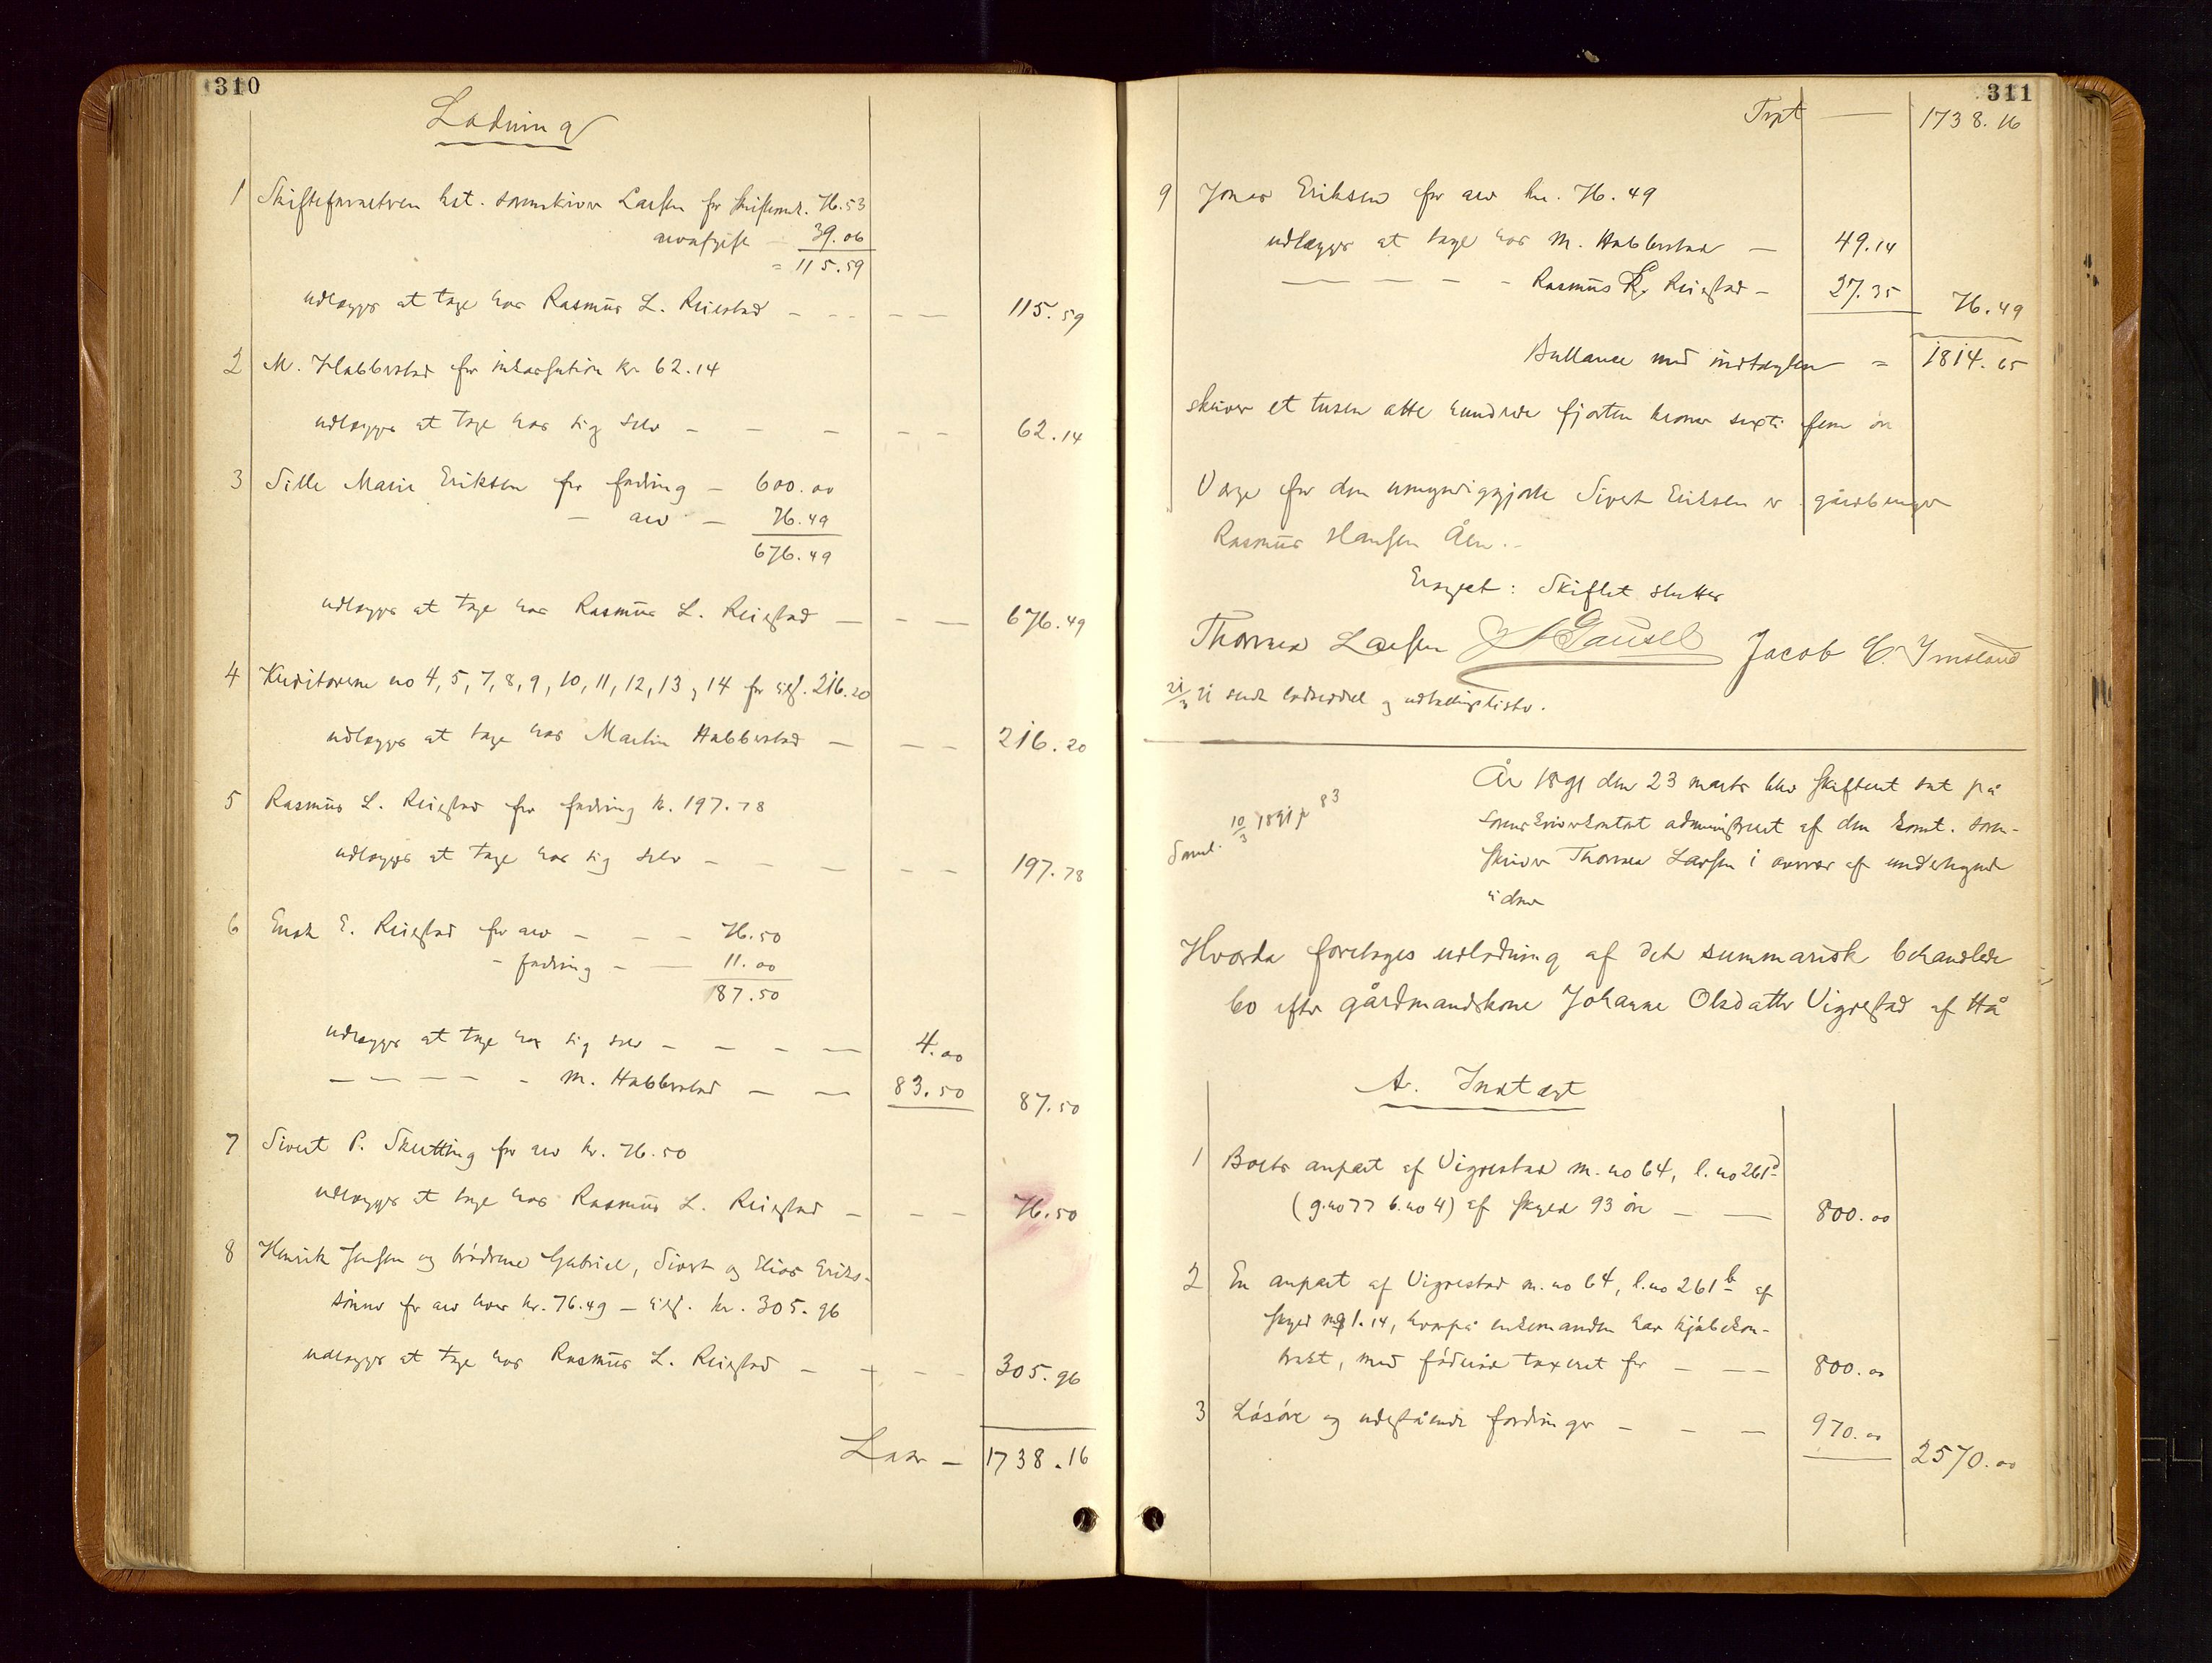 310
Lodning
1 Skifteforvalteren kst. sorenskriver Larsen for skifteomk. 76.53
arveafgift 39.06
= 115.59
udlægges at tage hos Rasmus L. Reiestad — 115.59
2 M. Habberstad for inkassation kr. 62.14
udlægges at tage hos sig selv — 62.14
3 Sille Marie Eriksen for fordring — 600.00
— arv — 76.49
676.49
udlægges at tage hos Rasmus L. Reiestad — 676.49
4 Kreditorerne no 4, 5, 7, 8, 9, 10, 11, 12, 13 og 14 for tils. 216.20
udlægges at tage hos Martin Habberstad — 216.20
5 Rasmus L. Reiestad for fordring kr. 197.78
udlægges at tage hos sig selv — 197.78
6 Enok E. Reiestad for arv — 76.50
- fordring — 11.00
87.50
udlægges at tage hos sig selv — 4.00
— — — — - M. Habberstad — 83.50 87.50
7 Sivert P. Skretting for arv kr. 76.50
udlægges at tage hos Rasmus L. Reiestad — 76.50
8 Henrik Jensen og brødrene Gabriel, Sivert og Elias Eriks-
sønner for arv hver kr. 76.49 — tils. kr. 305.96
udlægges at tage hos Rasmus L. Reiestad — 305.96
Lar — 1738.16
311
Trpt — 1738.16
9 Jonas Eriksen for arv kr. 76.49
udlægges at tage hos M. Habberstad — 49.14
— — — - Rasmus L. Reiestad — 27.35 76.49
Ballance med indtægten = 1814.65
skriver et tusen otte hundrede fjorten kroner sexti fem øre
Værge for den umyndiggjorte Sivert Eriksen er gårdbruger
Rasmus Hansen Åen.-
Eragtet: Skiftet slutter
Thomas Larsen Gausel Jacob E. Ymsland
21/3 91 sendt lodseddel og udbetalingslister.
Saml. 10/3 1891 p 83
År 1891 den 23 marts blev skifteret sat på
sorenskriverkontoret administreret af den konst. soren-
skriver Thomas Larsen i overvær af undertegnede
vidner
Hvorda foretages udlodning af det summarisk behandlede
bo efter gårdmandskone Johanne Olsdatter Vigrestad af Hå
A. Indtægt
1 Boets anpart af Vigrestad m. no 64, l. no 261d
(g.no 77 b.no 4) af skyld 93 øre — 800.00
2 En anpart af Vigrestad m. no 64, l. no 261b af
skyld mk 1.14, hvorpå enkemanden har kjøbekon-
trakt, med føderåd taxeret for — 800.00
3 Løsøre og udestående fordringer — 970.00 2570.00